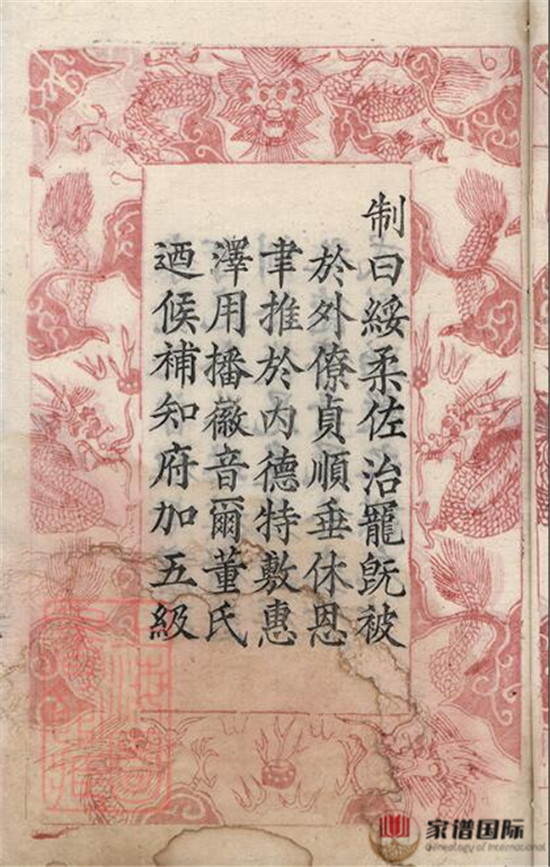 制曰綏柔佐治寵旣被
於外僚貞順垂休恩
聿推於內德特敷惠
澤用播徽音爾董氏
迺候補知府加五級
家谱国际
Genealogy of International